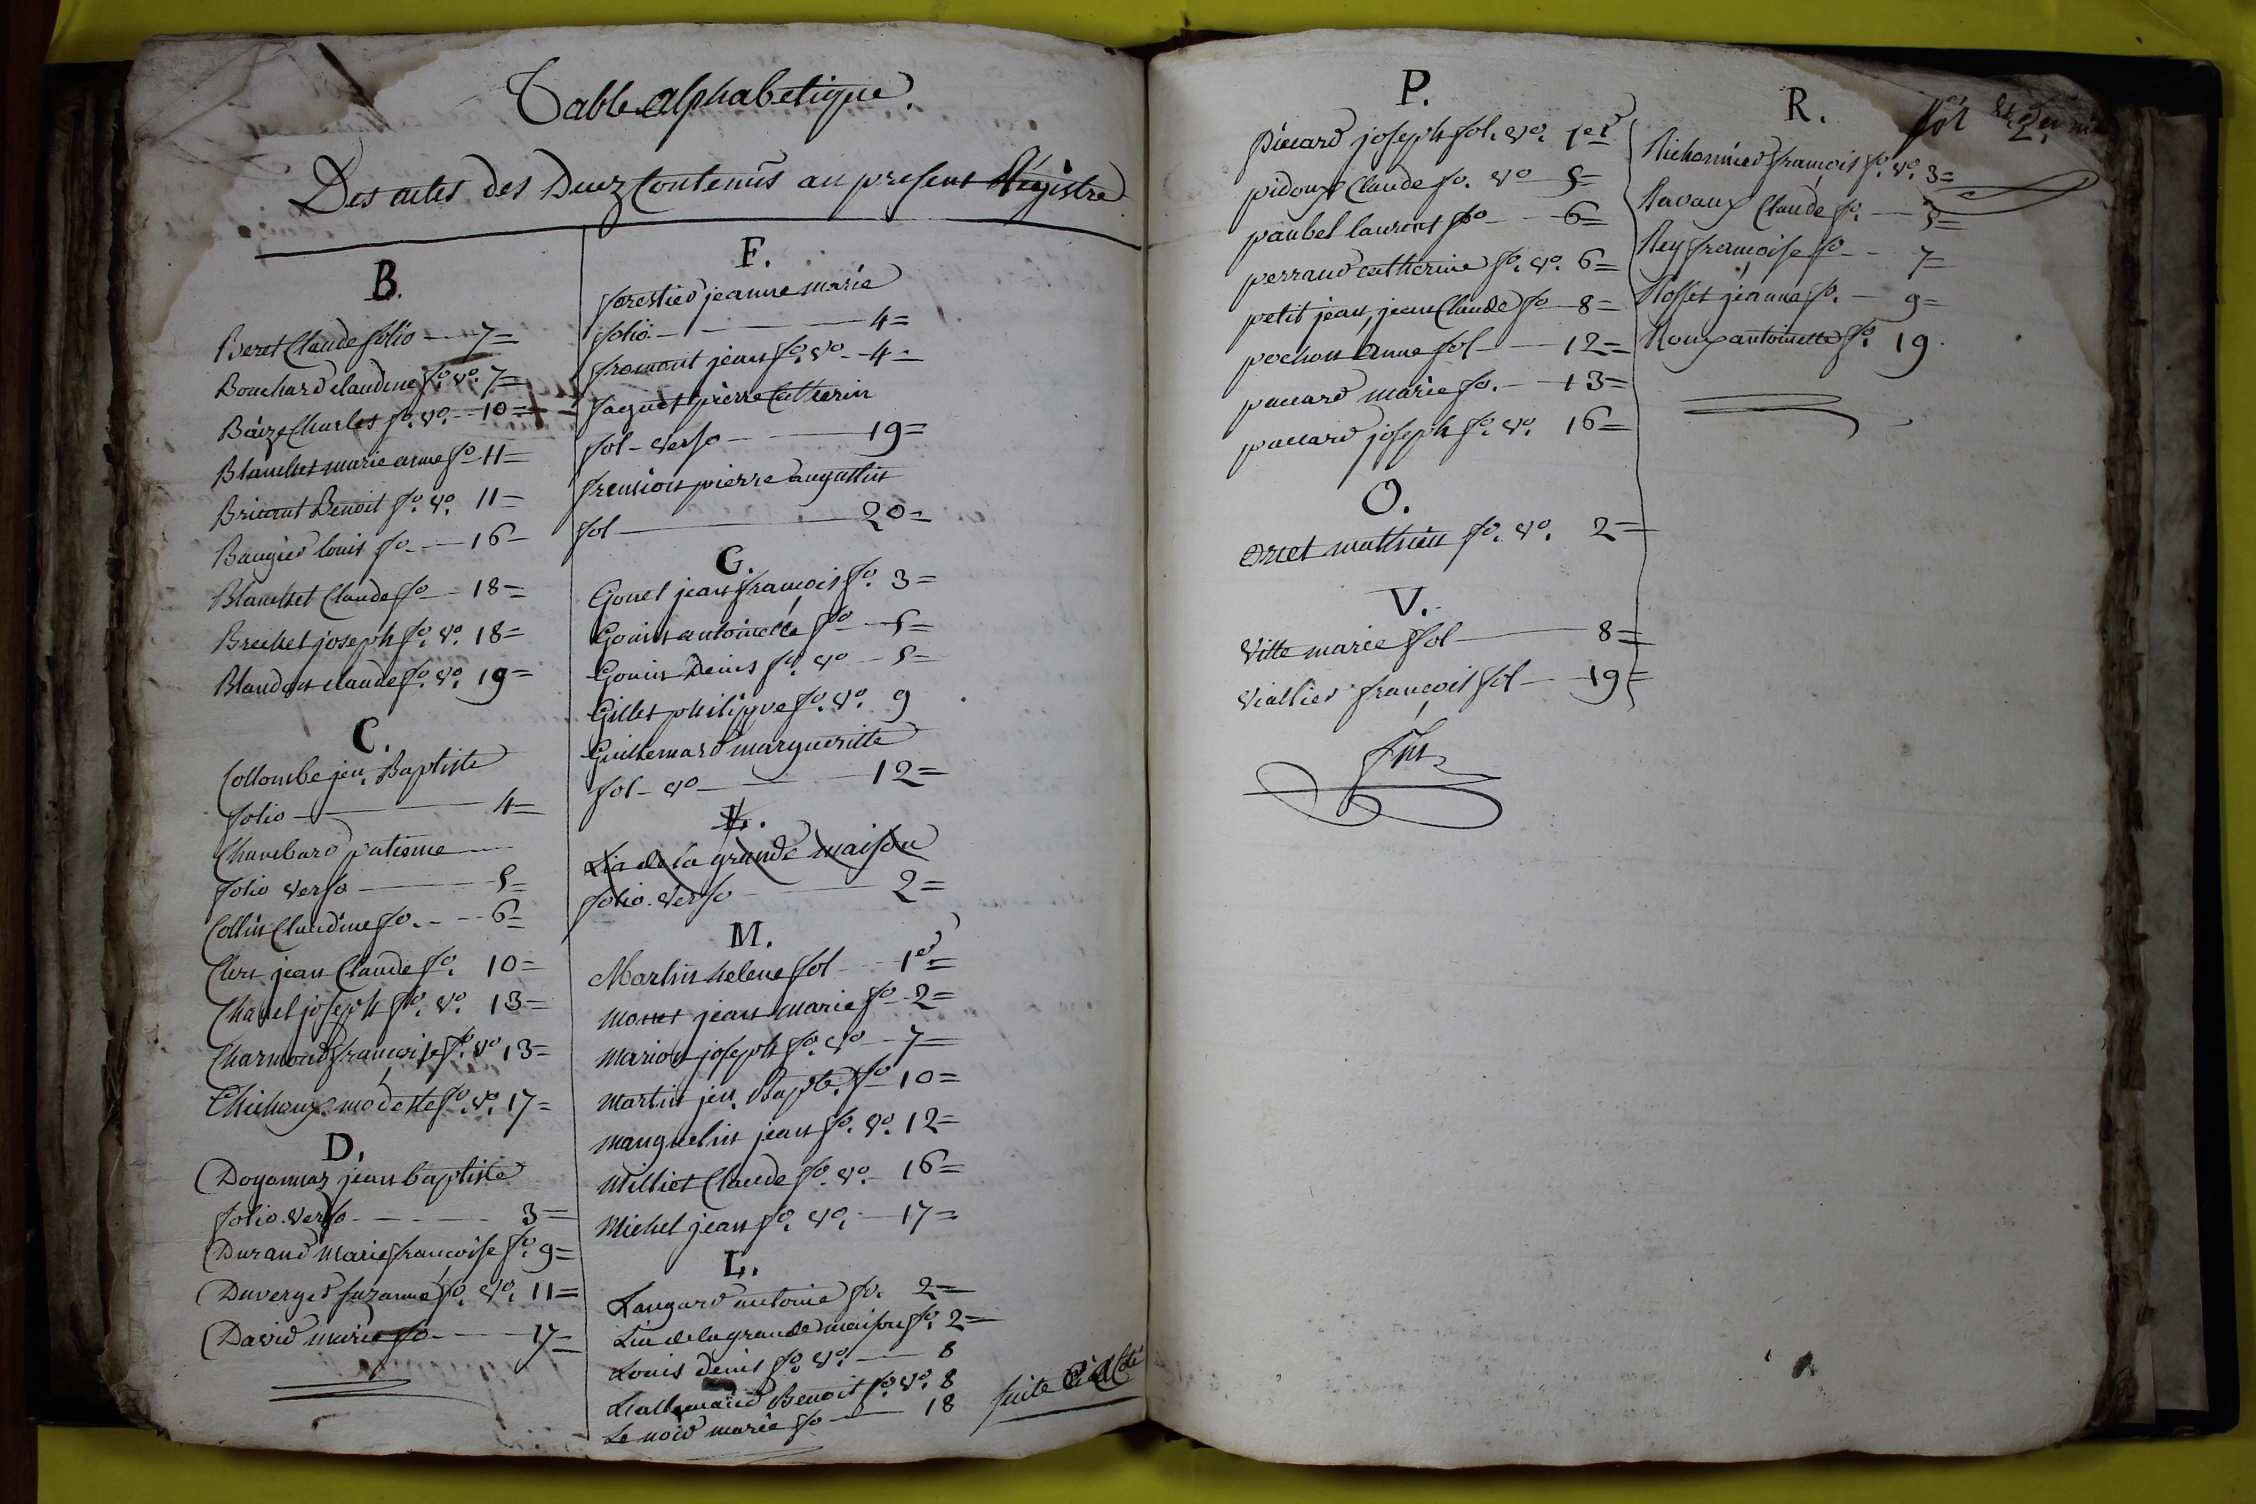 Table alphabetique.
Des actes des Decez Contenus au present Régistre
B.
Beret Claude folio — 7=
Bouchard claudine fo. vo. 7=
Baize Charles fo. vo. — 10=
Blanchet marie anne fo 11=
Bricaut Benoit fo. vo. 11=
Baugied louis fo — 16-
Blanchet Claude fo — 18=
Brechet joseph fo. vo. 18=
Blandon claude fo. vo. 19=
C.
Collombe jen. Baptiste
folio — 4=
Chambard patienne —
folio verso — 5=
Collin Claudine fo. — 6=
Clerc jean Claude fo. 10=
Chanel joseph fo. vo. 13=
Charmond françoise fo. vo 13=
Chichoux modeste fo. vo. 17=
D.
Doyannaz jean baptiste
folio. verso — 3=
Durand marie françoise fo. 9=
Duverger suzanne fo. vo. 11=
David marie fo — 17=
F.
forestier jeanne marie
folio. — 4=
fromont jean fo. vo. — 4=
faguet pierre Catherin
fol — verso — 19=
frenion pierre augustin
fol — 20=
G.
Gonet jean françois fo. 3=
Gouin antoinette fo — 5=
Gouin Denis fo. vo — 5=
Gillet philippe fo. vo. 9
Guillemard margueritte
fol — vo — 12=
L.
Lia de la grande maison
folio. verso — 2=
M.
Martin helene fol — 1er=
monet jean marie fo — 2=
marion joseph fo. vo — 7=
martin jen. Bapte. fo 10=
manguelin jean fo. vo. 12=
Milliet Claude fo. vo. 16=
Michel jean fo. vo. — 17=
L.
Laugard antoine fo. 2=
Lia de la grande maison fo. 2=
Louis denis fo. vo. — 8
Lallemand Benoit fo. vo. 8
Le noid marie fo — 18
suite
P.
Piccard joseph fol. vo. 1er
pidoux Claude fo. vo — 5=
paubel laurent fo — 6=
perraud catherine fo. vo. 6=
petit jean, jean Claude fo — 8=
pochon anne fol — 12=
paccard marie fo. — 13=
paccard joseph fo. vo. 16=
O.
Orcet mathieu fo. vo. 2=
V.
Vitte marie fol — 8=
Viallier françois fol — 19=
fin
R.
Richonnier françois fo. vo. 3=
Ravaux Claude fo. — 5=
Rey françoise fo — 7=
Rosset jeanne fo. — 9=
Roux antoinette fo. 19.